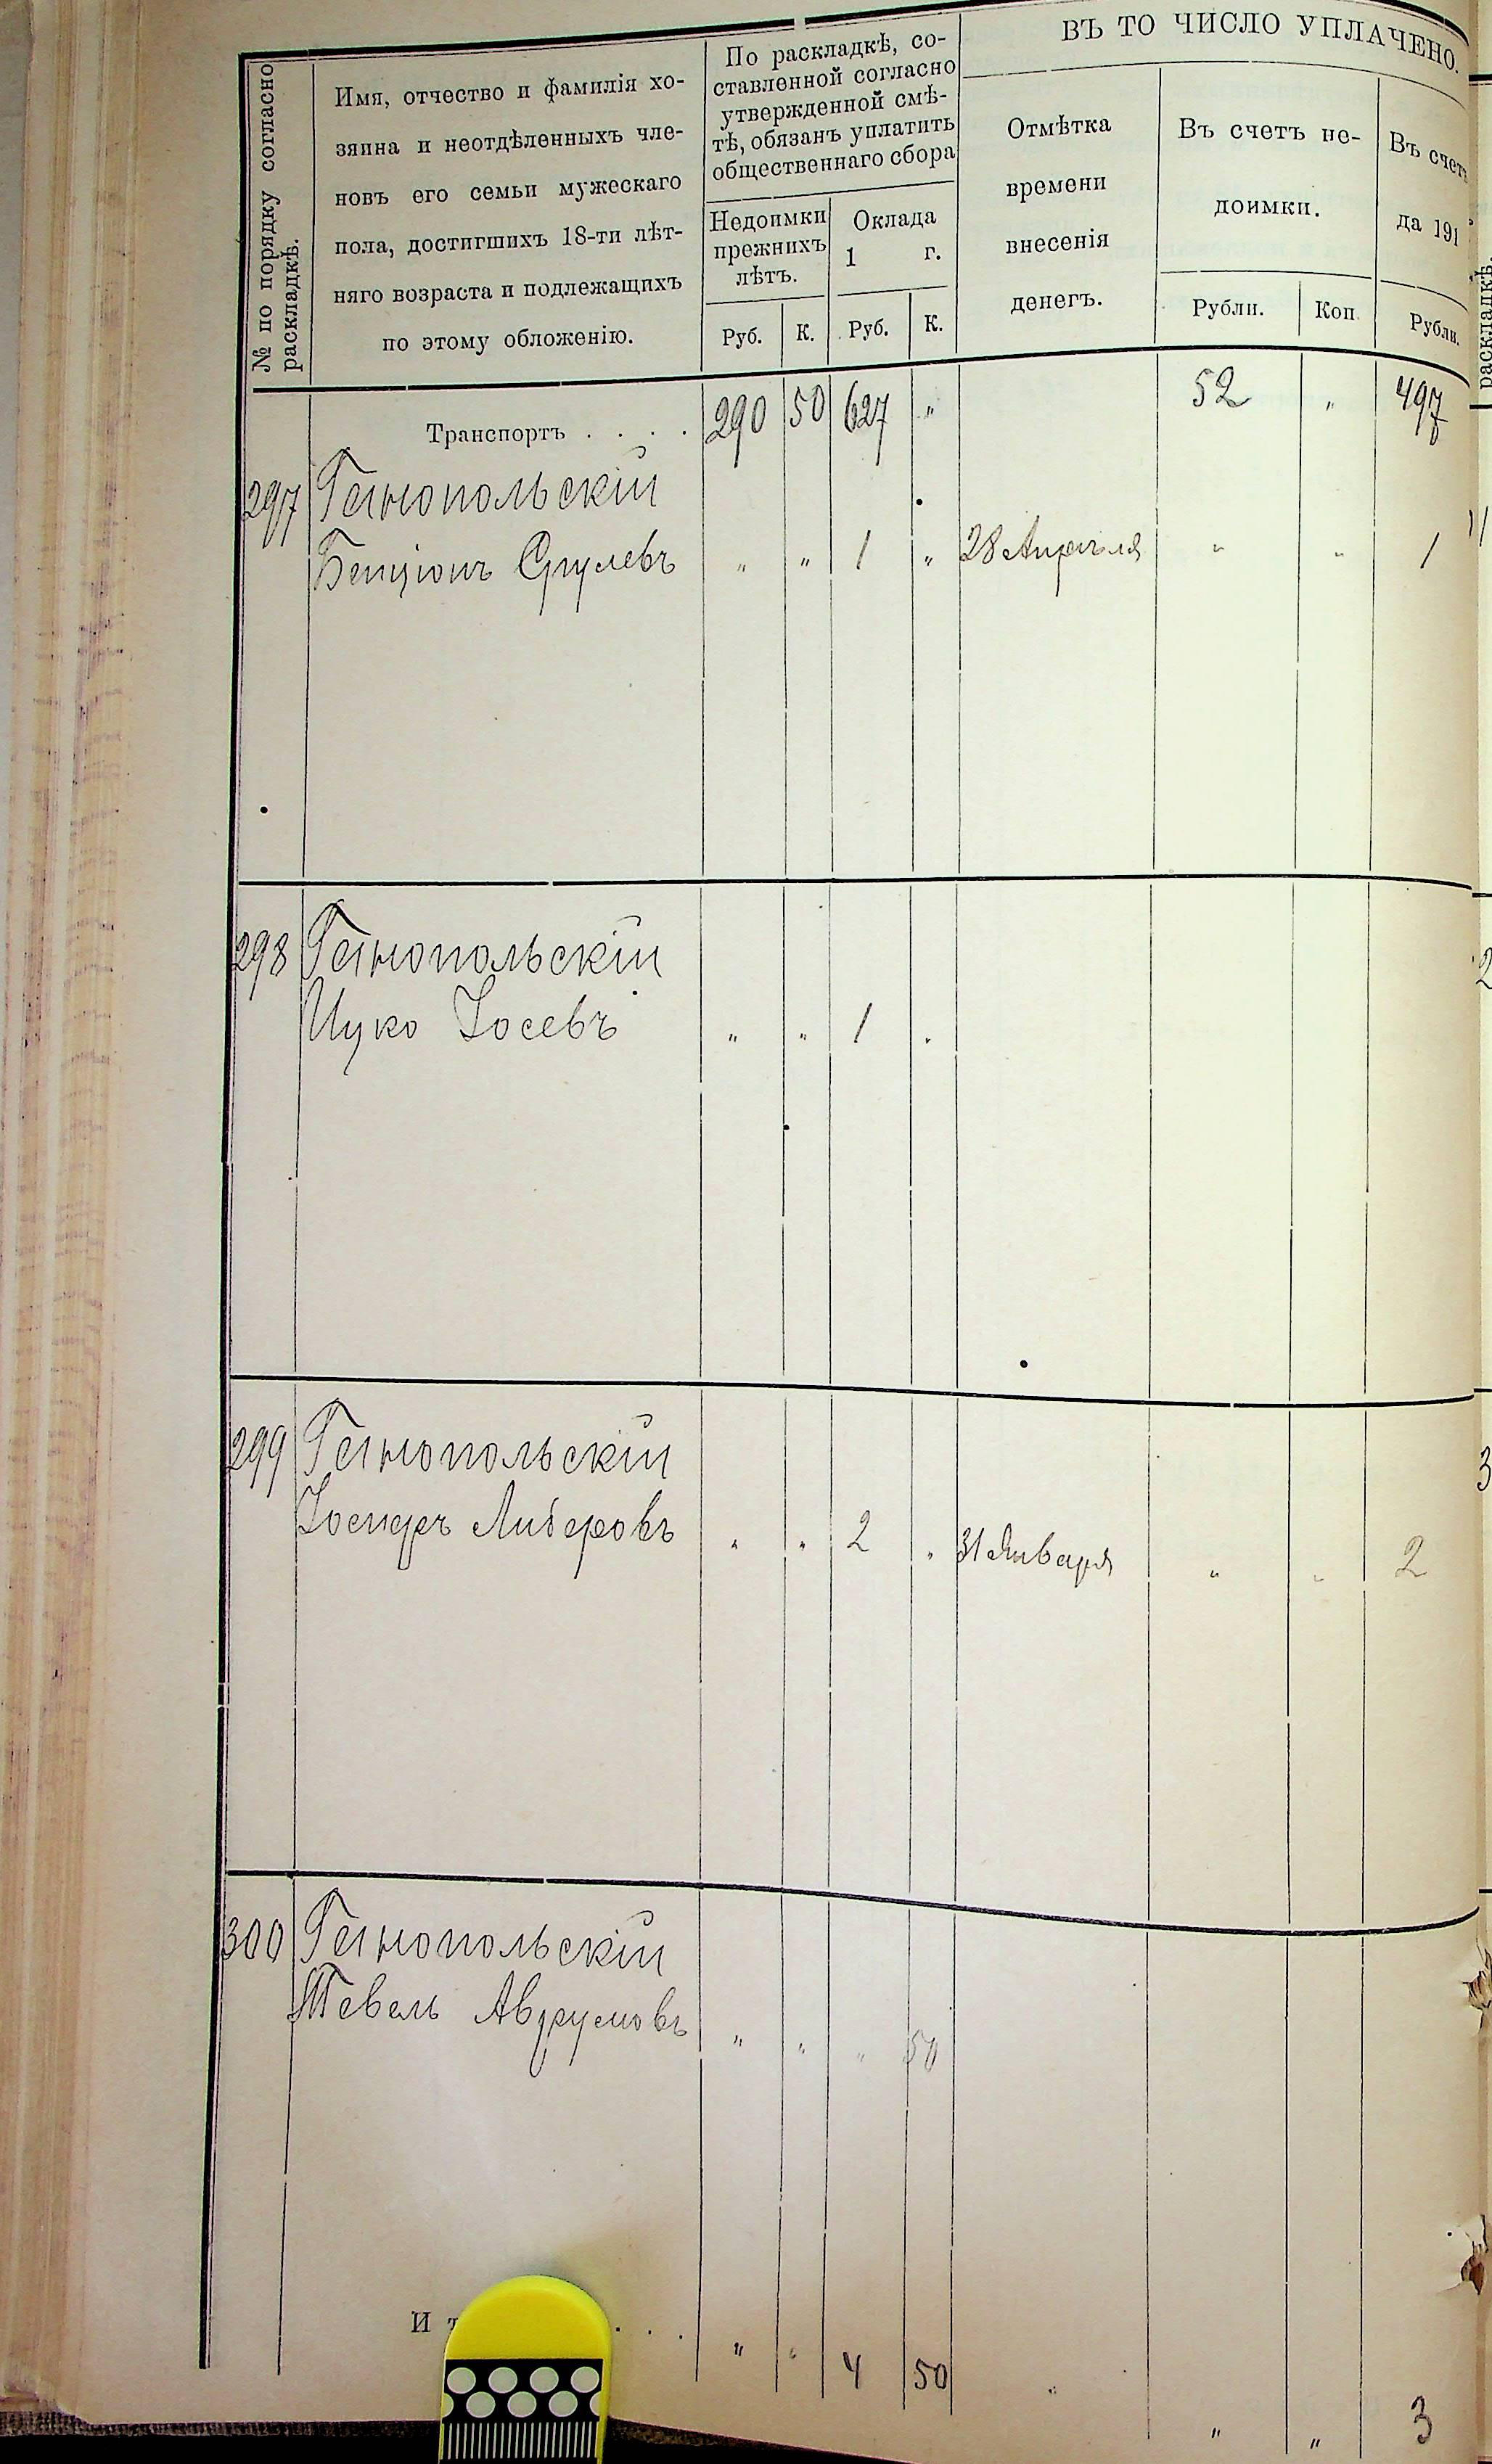 № по порядку согласно
раскладкѣ.
Имя, отчество и фамилія хо-
зяина и неотдѣленныхъ чле-
новъ его семьи мужескаго
пола, достигшихъ 18-ти лѣт-
няго возраста и подлежащихъ
по этому обложенію.
По раскладкѣ, со-
ставленной согласно
утвержденной смѣ-
тѣ, обязанъ уплатить
общественнаго сбора
Недоимки
прежнихъ
лѣтъ.
Оклада
1 г.
Руб. К. Руб. К.
ВЪ ТО ЧИСЛО УПЛАЧЕНО.
Отмѣтка
времени
внесенія
денегъ.
Въ счетъ не-
доимки.
Рубли. Коп
Въ счетъ
да 191
Рубли.
раскладкѣ.
Транспортъ . . . . 290 50 627 " 52 " 497
297 Тайнопольскій
Бенціонъ Срулевъ " " 1 " 28 Апрѣля " " 1
298 Тайнопольскій
Ицко Іосевъ " " 1 "
299 Тайнопольскій
Іосифъ Либеровъ " " 2 " 31 Января " " 2
300 Тайнопольскій
Тевель Аврумовъ " " " 50
И т . . . " " 4 50 " " " 3